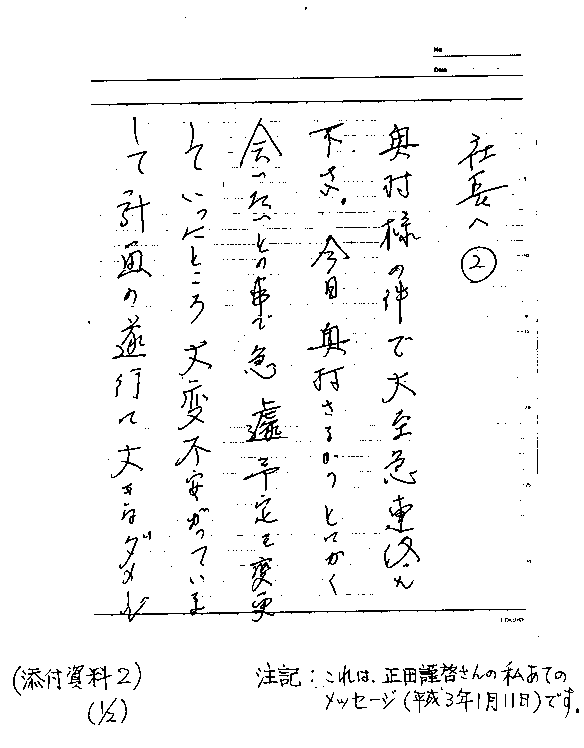 No.
Date
社長へ ②
奥村様の件で大至急連絡を
下さい。今日奥村さんがとにかく
会いたいとの事で急遽予定を変更
していったところ大変不安がっていま
して計画の遂行に大きなダメー
(添付資料2)
(1/2)
注記:これは、正田謹啓さんの私あての
メッセージ(平成3年1月11日)です。